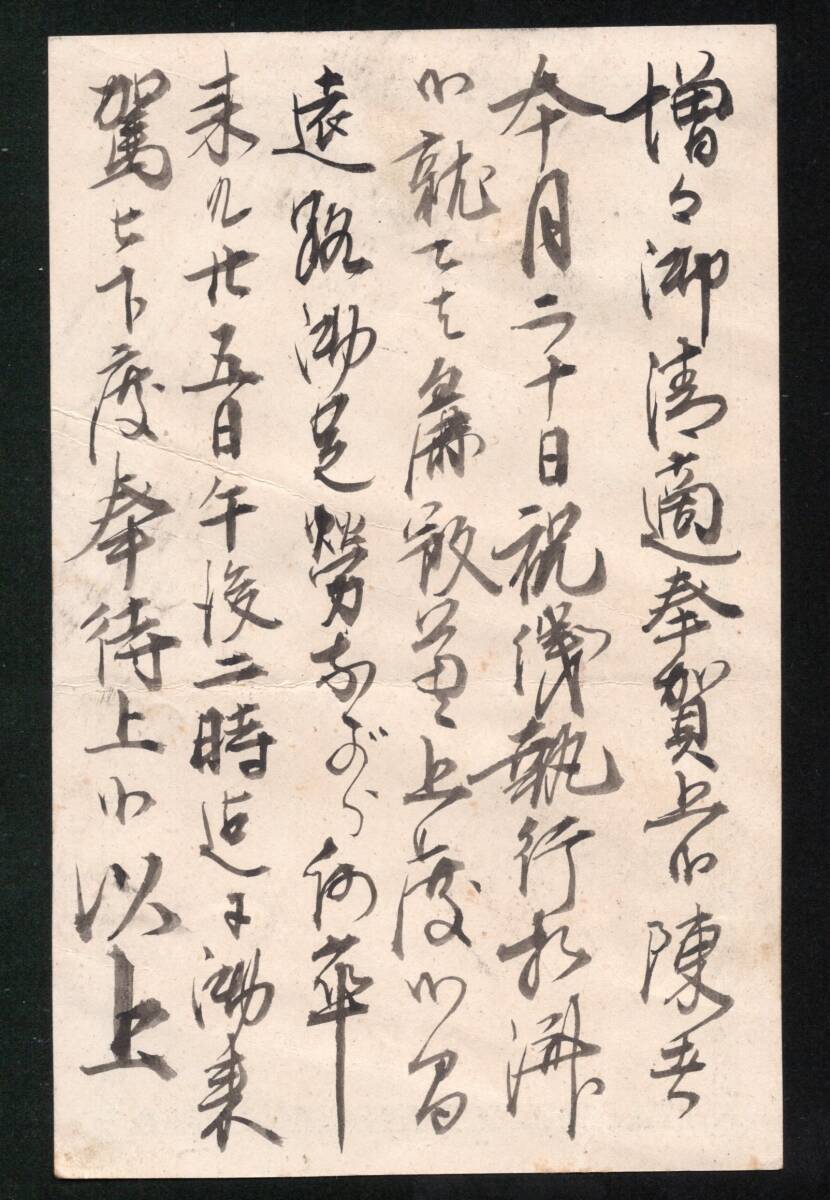 増々御清適奉賀上候陳者
本月二十日祝儀執行相済
候就ては麁飯差上度候間
遠路御足労ながら何卒
来る廿五日午後二時迄に御来
駕被下度奉待上候以上